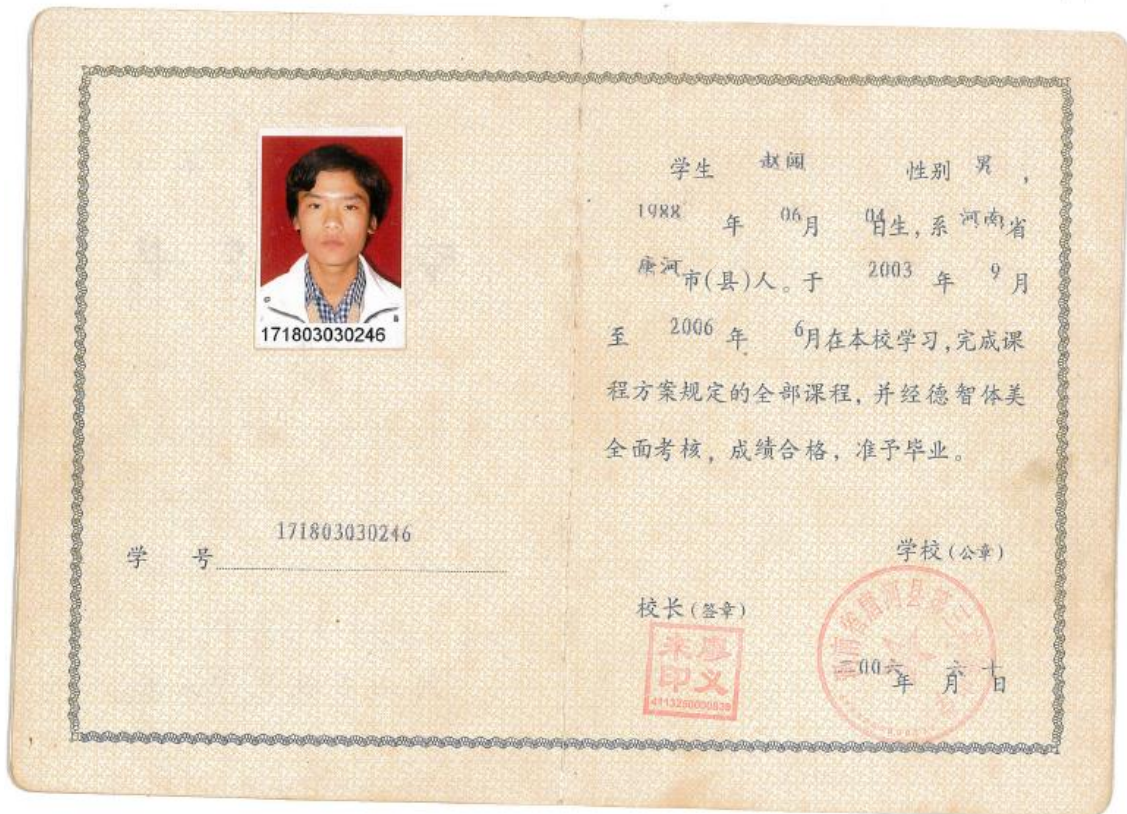 171803030246
学 号 171803030246
学生 赵闯 性别 男，
1988 年 06月 04日生，系 河南省
唐河市(县)人。于 2003 年 9 月
至 2006 年 6月在本校学习，完成课
程方案规定的全部课程，并经德智体美
全面考核，成绩合格，准予毕业。
学校(公章)
校长(签章)
二00六年 六月 十日